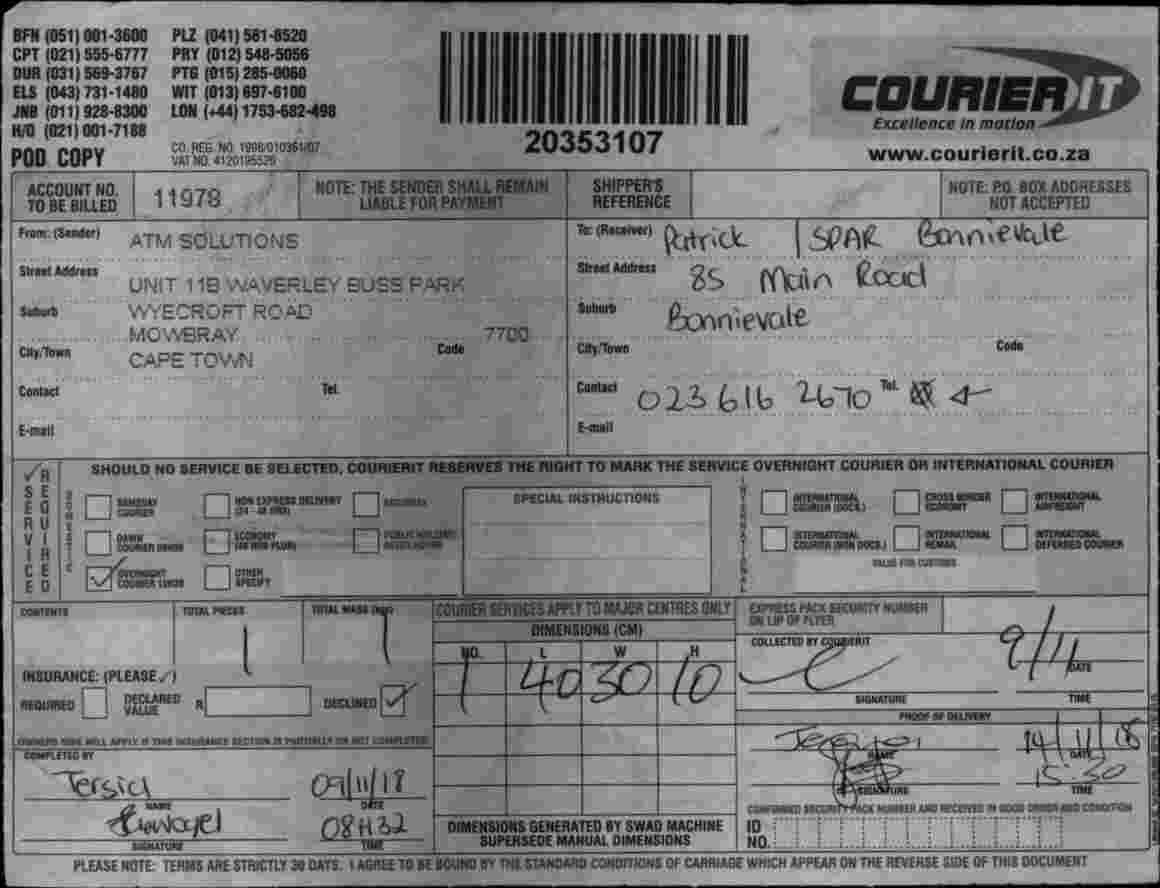 BFN (051) 001-3600 PLZ (041) 581-8520
CPT (021) 555-6777 PRY (012) 548-5056
DUR (031) 569-3767 PTG (015) 285-0060
ELS (043) 731-1480 WIT (013) 697-6100
JNB (011) 928-8300 LON (+44) 1753-682-498
H/O (021) 001-7188
POD COPY
CO. REG. NO. 1998/010361/07
VAT NO. 4120195526
20353107
COURIER IT
Excellence in motion
www.courierit.co.za
ACCOUNT NO. TO BE BILLED 11978
NOTE: THE SENDER SHALL REMAIN LIABLE FOR PAYMENT
SHIPPER'S REFERENCE
NOTE: P.O. BOX ADDRESSES NOT ACCEPTED
From: (Sender) ATM SOLUTIONS
Street Address UNIT 11B WAVERLEY BUSS PARK
Suburb WYECROFT ROAD
MOWBRAY 7700
City/Town CAPE TOWN Code
Contact Tel.
E-mail
To: (Receiver) Patrick | SPAR Bonnievale
Street Address 85 Main Road
Suburb Bonnievale
City/Town Code
Contact 023 616 2670 Tel.
E-mail
SERVICE REQUIRED
SHOULD NO SERVICE BE SELECTED, COURIERIT RESERVES THE RIGHT TO MARK THE SERVICE OVERNIGHT COURIER OR INTERNATIONAL COURIER
DOMESTIC
SAMEDAY COURIER
NON EXPRESS DELIVERY
DAWN COURIER
ECONOMY
PUBLIC HOLIDAY
OVERNIGHT COURIER
OTHER SPECIFY
SPECIAL INSTRUCTIONS
INTERNATIONAL
INTERNATIONAL COURIER (DOCS.)
CROSS BORDER ECONOMY
INTERNATIONAL AIRFREIGHT
INTERNATIONAL COURIER (NON DOCS.)
INTERNATIONAL REMAIL
INTERNATIONAL DEFERRED COURIER
VALUE FOR CUSTOMS
CONTENTS
TOTAL PIECES 1
TOTAL MASS (KG) 1
COURIER SERVICES APPLY TO MAJOR CENTRES ONLY
DIMENSIONS (CM)
NO. L W H
1 40 30 10
EXPRESS PACK SECURITY NUMBER ON LIP OF FLYER
COLLECTED BY COURIERIT
9/11 DATE
SIGNATURE TIME
INSURANCE: (PLEASE ✓)
REQUIRED DECLARED VALUE R DECLINED ✓
OWNERS RISK WILL APPLY IF THIS INSURANCE SECTION IS PARTIALLY OR NOT COMPLETED
COMPLETED BY
NAME
09/11/18 DATE
SIGNATURE
08H32 TIME
DIMENSIONS GENERATED BY SWAD MACHINE SUPERSEDE MANUAL DIMENSIONS
PROOF OF DELIVERY
NAME
14/11/18 DATE
SIGNATURE
15:30 TIME
CONFIRMED SECURITY PACK NUMBER AND RECEIVED IN GOOD ORDER AND CONDITION
ID NO.
PLEASE NOTE: TERMS ARE STRICTLY 30 DAYS. I AGREE TO BE BOUND BY THE STANDARD CONDITIONS OF CARRIAGE WHICH APPEAR ON THE REVERSE SIDE OF THIS DOCUMENT